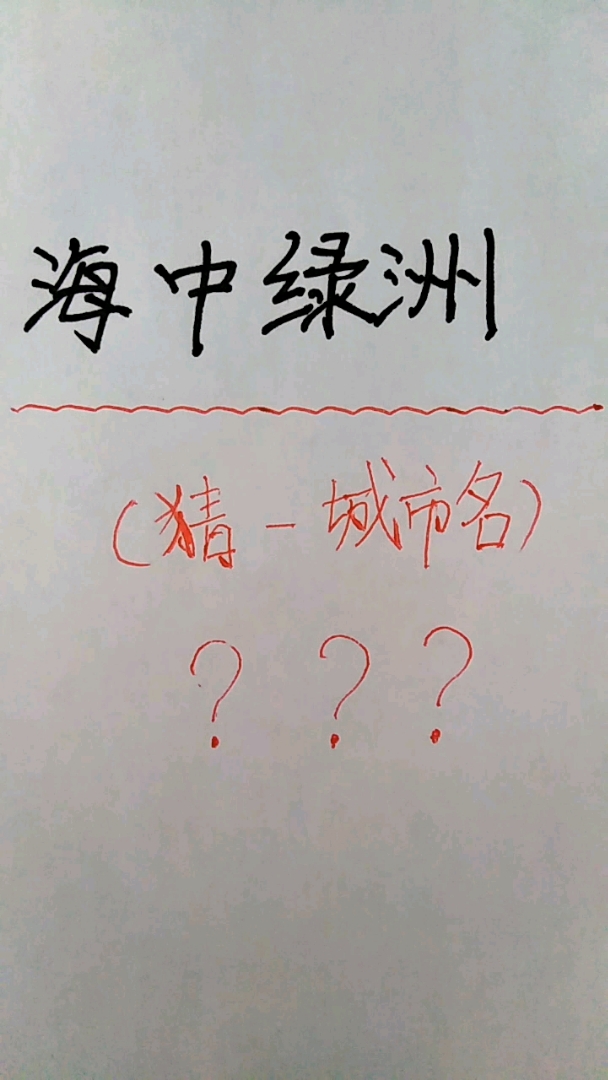 海中绿洲
(猜一城市名)
? ? ?